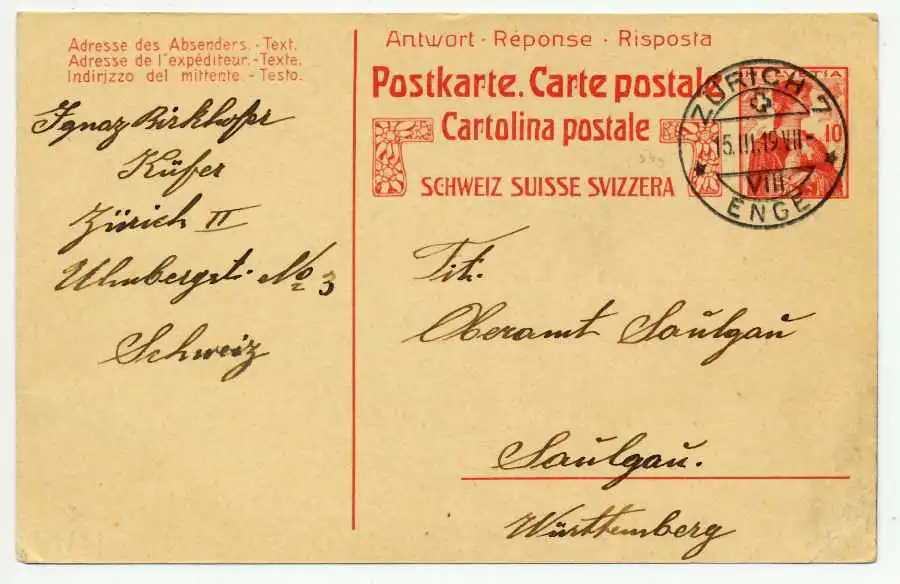 Adresse des Absenders. - Text.
Adresse de l'expéditeur. - Texte.
Indirizzo del mittente. - Testo.
Ignaz Birkhofer
Küfer
Zürich II
Ulmbergst. No 3
Schweiz
Antwort · Réponse · Risposta
Postkarte. Carte postale
Cartolina postale
SCHWEIZ SUISSE SVIZZERA
ZÜRICH 7
15.III.19 VII-
VIII
ENGE
10
Tit.
Oberamt Saulgau
Saulgau.
Württemberg